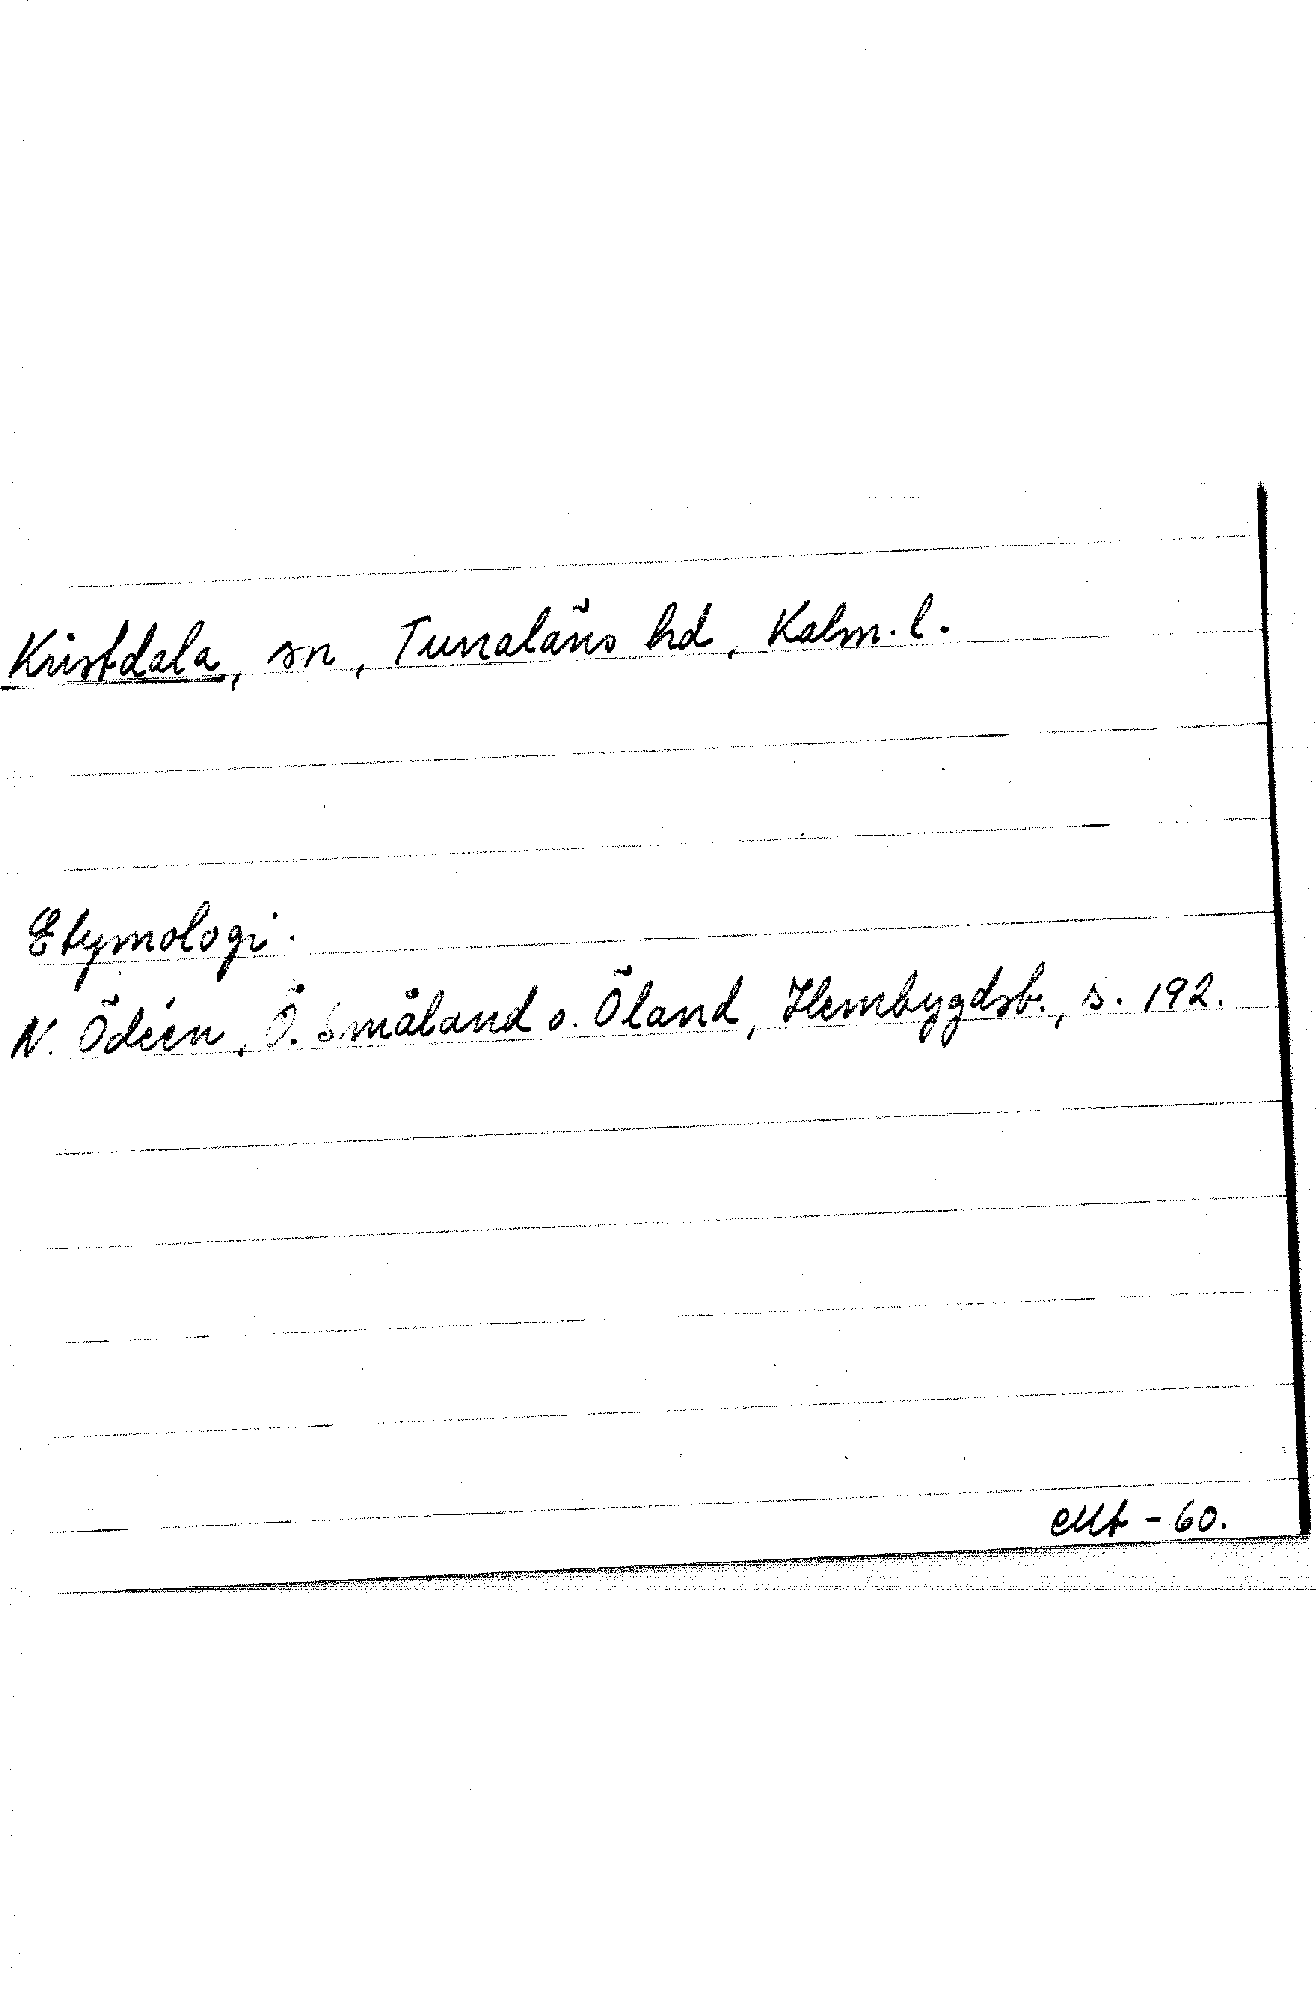 Kristdala, sn, Tunaläns hd, Kalm. l.
Etymologi.
N. Ödéen, Ö. Småland o. Öland, Hembygdsb., s. 192.
-60.